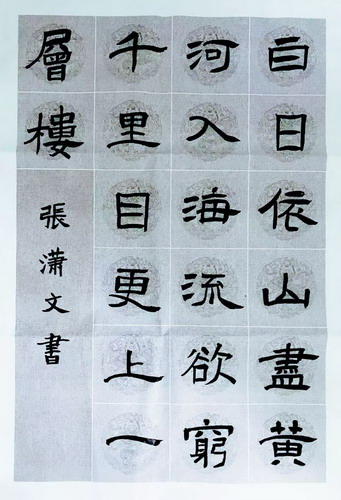 白日依山盡黄
河入海流欲窮
千里目更上一
層樓
張潇文書